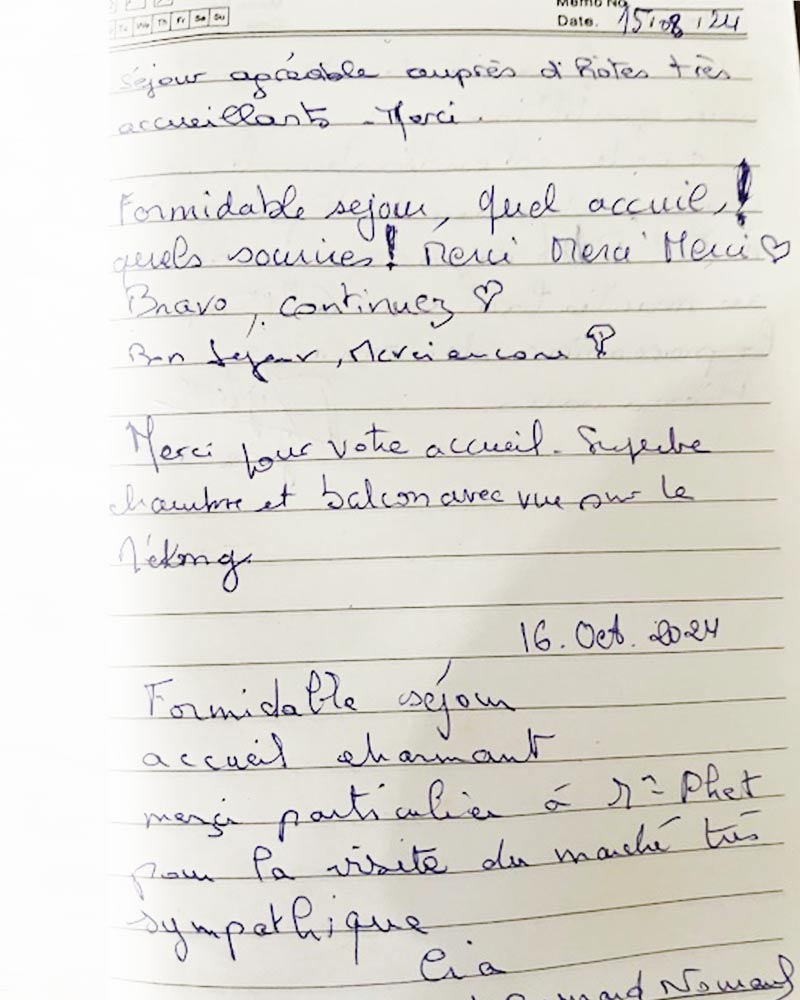 Memo No.
Tu We Th Fr Sa Su
Date. 15/08/24
Séjour agréable auprès d'hôtes très
accueillants - Merci.
Formidable sejour, quel accueil,!
quels sourires! Merci Merci Merci ♡
Bravo, continuez ♡
Bon Séjour, Merci encore
Merci pour votre accueil. Superbe
chambre et balcon avec vue sur le
Mékong.
16. Oct. 2024
Formidable séjour
accueil charmant
merçi particulier à Mr Phet
pour la visite du marché très
sympathique